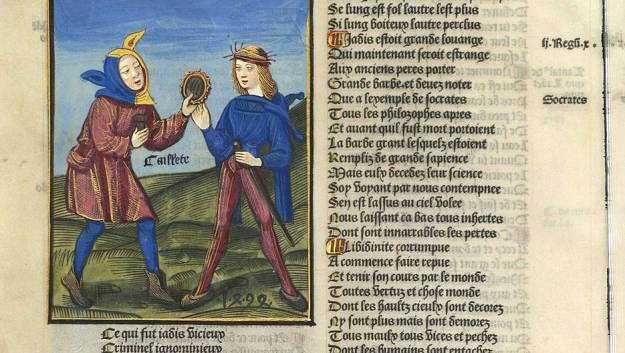 Caillete
Ce qui fut iadis vicieux
Criminel ignominieux
Se lung est fol lautre lest plus
Si lung boiteux lautre perclus
Iadis estoit grande louange
Qui maintenant seroit estrange
Aux anciens peres porter
Grande barbe, et deuez noter
Que a lexemple de socrates
Tous les philozophes apres
Et auant quil fust mort portoient
La barbe grant lesquelz estoient
Rempliz de grande sapience
Mais euly decedez leur science
Soy voyant par nous contempnee
Sen est lassus au ciel volee
Nous laissant ca bas tous inhertes
Dont sont innarrables les pertes
Libidinite corrumpue
A commence faire repue
Et tenir son cours par le monde
Toutes vertuz et chose monde
Dont les haultz cieulx sont decorez
Ny sont plus mais sont demorez
Tous maulx tous vices et pechez
Dont les humains sont entachez
ij. Regū. x.
Socrates